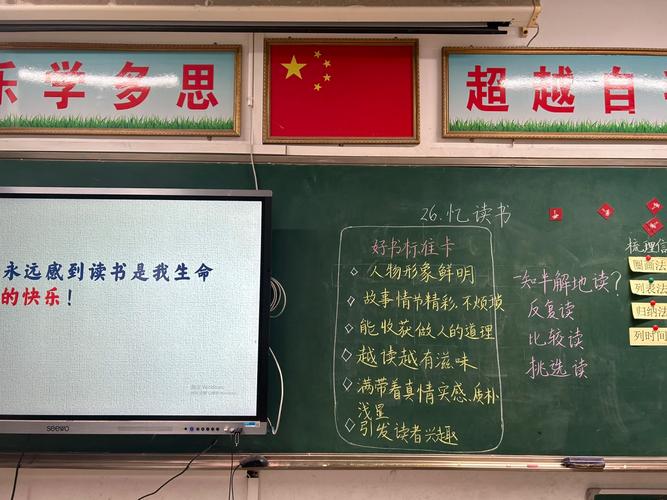 乐学多思
超越自
永远感到读书是我生命
的快乐！
激活 Windows
seewo
26.忆读书
好书标准卡
人物形象鲜明
故事情节精彩、不烦琐
能收获做人的道理
越读越有滋味
满带着真情实感、质朴
浅显
引发读者兴趣
一知半解地读？
反复读
比较读
挑选读
梳理信
圈画法
列表法
归纳法
列时间